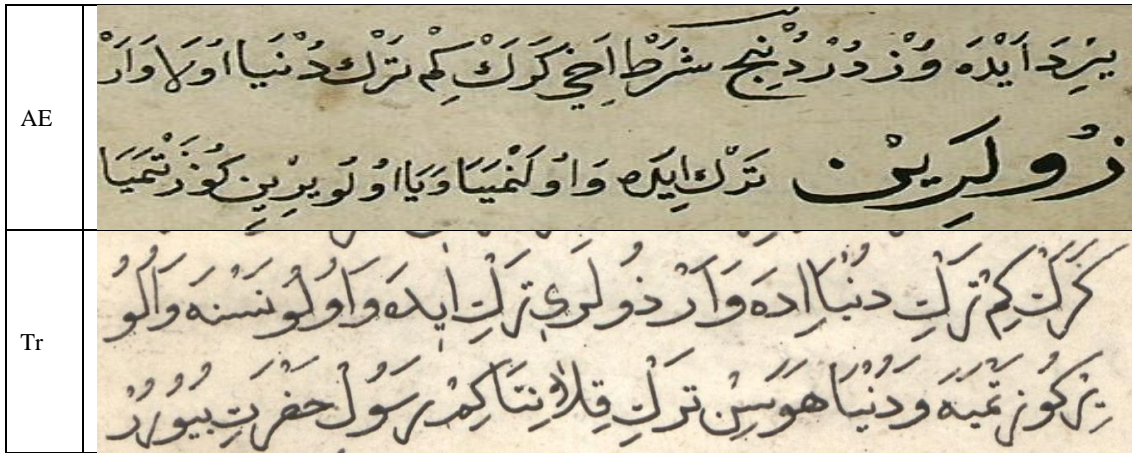 AE
يِرِدَ اَيْدَه وُزْ دُرْدُنْجِ شَرْطْ اَخِي كَرَكْ كِمْ تَرْك دُنْيَا اوُلَا وَارْ
زُولَرِينْ تَرْك اِيدَه وَاوُلَنْمَيَا وَيَا اوُلُو يِرِينِ كُوزَتْمَيَا
Tr
كَرَكْ كِمْ تَرْكِ دُنْيَا اِدَه وَاَرْذُولَرِي تَرْكِ اِيدَه وَاوُلُو نَسْنَه وَالُو
يِرْ كُوزَتْمَيَه وَدُنْيَا هَوَسِنْ تَرْكِ قِلَا نِتَاكِمْ رَسُولْ حَضْرَتِ بُيُورُرْ